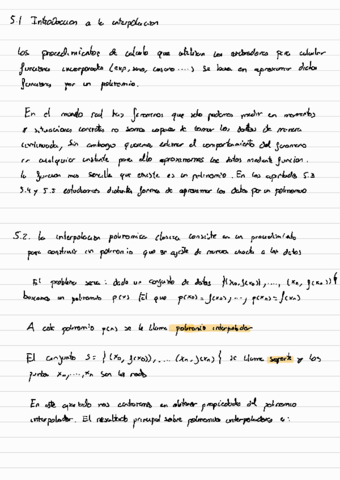 5.1 Introducción a la interpolación
Los procedimientos de calculo que utilizan los ordenadores para calcular
funciones incorporadas (exp, seno, coseno ....) Se basan en aproximar dichas
funciones por un polinomio.
En el mundo real hay fenomenos que solo podemos medir en momentos
o situaciones concretas no somos capaces de tomar los datos de manera
continuada, Sin embargo queremos estimar el comportamiento del fenomeno
en cualquier instante para ello aproximaremos los datos mediante función.
la función mas sencilla que existe es un polinomio. En los apartados 5.3
5.4 y 5.5 estudiaremos distintas formas de aproximar los datos por un polinomio
5.2. la interpolación polinomica clasica consiste en un procedimiento
para construir un polinomio que se ajuste de manera exacta a los datos
El problema sera: dado un conjunto de datos {(x0, f(x0)), ...., (xn, f(xn))}
buscamos un polinomio p(x) tal que p(x0) = f(x0), ..., p(xn) = f(xn)
A este polinomio p(x) se le llama polinomio interpolador
El conjunto S = {(x0, f(x0)), .... (xn, f(xn)} se llama soporte y los
puntos x0, ...., xn son los nodos
En este apartado nos centraremos en obtener propiedades del polinomio
interpolador. El resultado principal sobre polinomios interpoladores es: